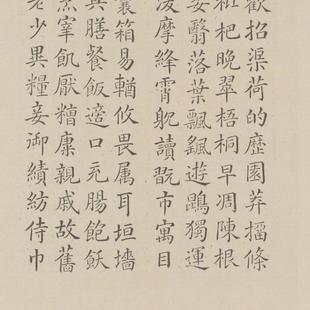 歡招渠荷的歷園莽條
枇杷晚翠梧桐早凋陳根
委翳落葉飄颻遊鵾獨運
凌摩絳霄躭讀翫市寓目
囊箱易輶攸畏属耳垣墻
具膳餐飯適口充腸飽飫
烹宰飢厭糟糠親戚故舊
老少異糧妾御績紡侍巾